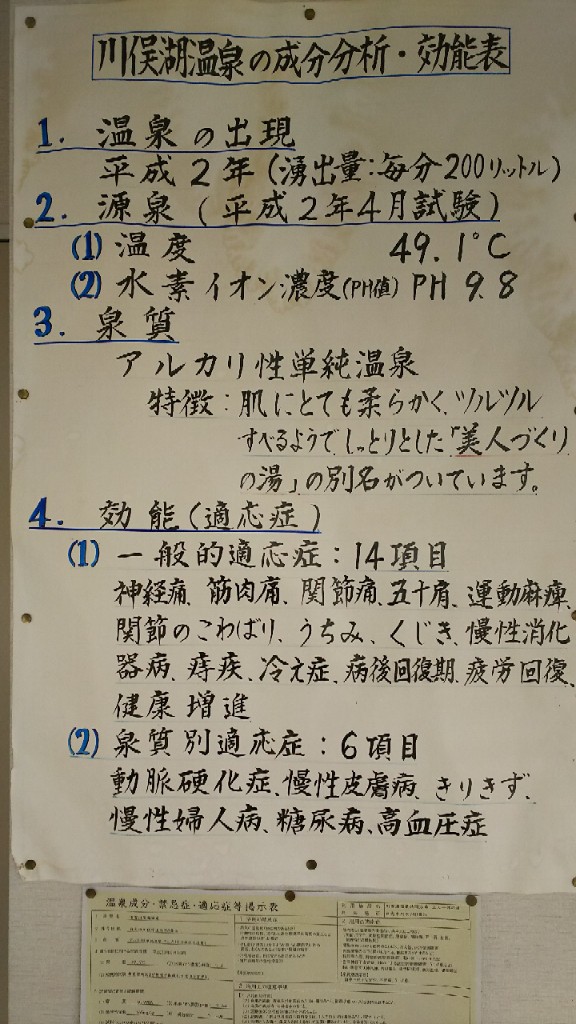 川俣湖温泉の成分分析・効能表
1. 温泉の出現
平成2年(湧出量:毎分200リットル)
2. 源泉(平成2年4月試験)
(1) 温度 49.1°C
(2) 水素イオン濃度(PH値) PH 9.8
3. 泉質
アルカリ性単純温泉
特徴:肌にとても柔らかく、ツルツル
すべるようでしっとりとした「美人づくり
の湯」の別名がついています。
4. 効能(適応症)
(1) 一般的適応症:14項目
神経痛、筋肉痛、関節痛、五十肩、運動麻痺、
関節のこわばり、うちみ、くじき、慢性消化
器病、痔疾、冷え症、病後回復期、疲労回復、
健康増進
(2) 泉質別適応症:6項目
動脈硬化症、慢性皮膚病、きりきず、
慢性婦人病、糖尿病、高血圧症
温泉成分・禁忌症・適応症等掲示表